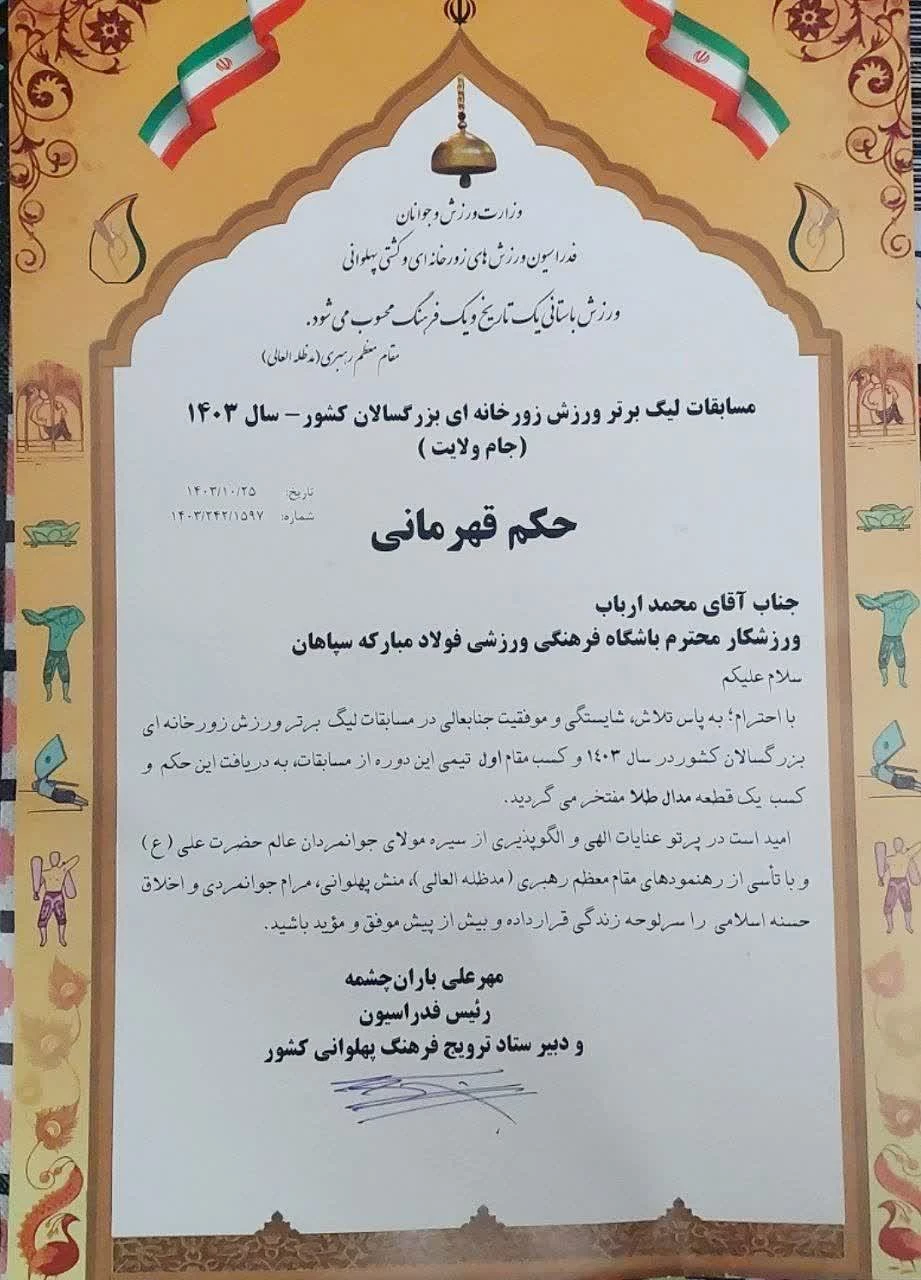 وزارت ورزش و جوانان
فدراسیون ورزش های زورخانه ای و کشتی پهلوانی
ورزش باستانی یک تاریخ و یک فرهنگ محسوب می شود.
مقام معظم رهبری(مدظله العالی)
مسابقات لیگ برتر ورزش زورخانه ای بزرگسالان کشور – سال ۱۴۰۳
(جام ولایت )
تاریخ: ۱۴۰۳/۱۰/۲۵
شماره: ۱۴۰۳/۲۴۲/۱۵۹۷
حکم قهرمانی
جناب آقای محمد ارباب
ورزشکار محترم باشگاه فرهنگی ورزشی فولاد مبارکه سپاهان
سلام علیکم
با احترام؛ به پاس تلاش، شایستگی و موفقیت جنابعالی در مسابقات لیگ برتر ورزش زورخانه ای
بزرگسالان کشور در سال ۱۴۰۳ و کسب مقام اول تیمی این دوره از مسابقات، به دریافت این حکم و
کسب یک قطعه مدال طلا مفتخر می گردید.
امید است در پرتو عنایات الهی و الگوپذیری از سیره مولای جوانمردان عالم حضرت علی (ع)
و با تأسی از رهنمودهای مقام معظم رهبری ( مدظله العالی )، منش پهلوانی، مرام جوانمردی و اخلاق
حسنه اسلامی را سرلوحه زندگی قرار داده و بیش از پیش موفق و مؤید باشید.
مهرعلی باران‌چشمه
رئیس فدراسیون
و دبیر ستاد ترویج فرهنگ پهلوانی کشور